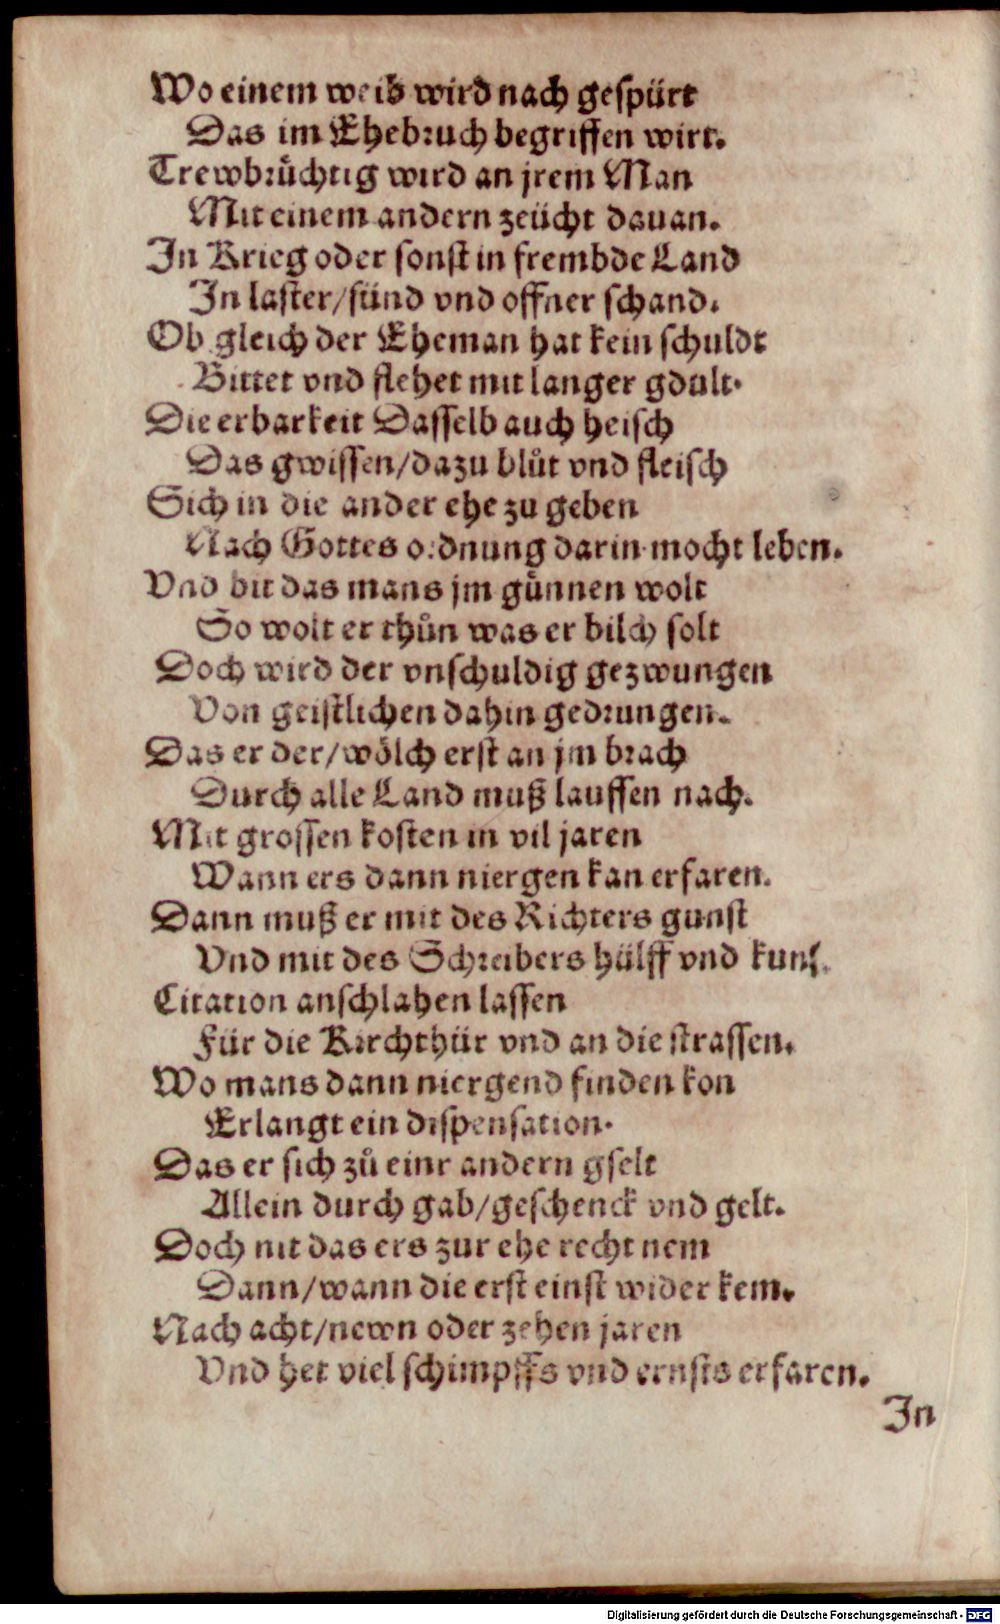 Wo einem weib wird nach gespürt
Das im Ehebruch begriffen wirt.
Trewbrüchtig wird an jrem Man
Mit einem andern zeücht dauan.
In Krieg oder sonst in frembde Land
In laster/sünd vnd offner schand.
Ob gleich der Eheman hat kein schuldt
Bittet vnd flehet mit langer gdult.
Die erbarkeit Dasselb auch heisch
Das gwissen/dazu blůt vnd fleisch
Sich in die ander ehe zu geben
Nach Gottes ordnung darin mocht leben.
Vnd bit das mans jm günnen wolt
So wolt er thůn was er bilch solt
Doch wird der vnschuldig gezwungen
Von geistlichen dahin gedrungen.
Das er der/wölch erst an jm brach
Durch alle Land muß lauffen nach.
Mit grossen kosten in vil jaren
Wann ers dann niergen kan erfaren.
Dann muß er mit des Richters gunst
Vnd mit des Schreibers hülff vnd kunst.
Citation anschlahen lassen
Für die Kirchthür vnd an die strassen.
Wo mans dann niergend finden kon
Erlangt ein dispensation.
Das er sich zů einr andern gselt
Allein durch gab/geschenck vnd gelt.
Doch nit das ers zur ehe recht nem
Dann/wann die erst einst wider kem.
Nach acht/newn oder zehen jaren
Vnd het viel schimpffs vnd ernsts erfaren.
In
Digitalisierung gefördert durch die Deutsche Forschungsgemeinschaft - DFG